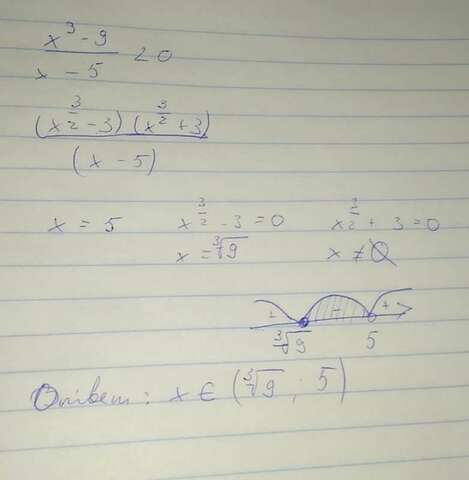 x³ - 9
x - 5 < 0
(x^(3/2) - 3) (x^(3/2) + 3)
(x - 5)
x = 5 x^(3/2) - 3 = 0 x^(3/2) + 3 = 0
x = ∛9 x ≠
+ - +
∛9 5
Ответ: x ∈ (∛9 ; 5)